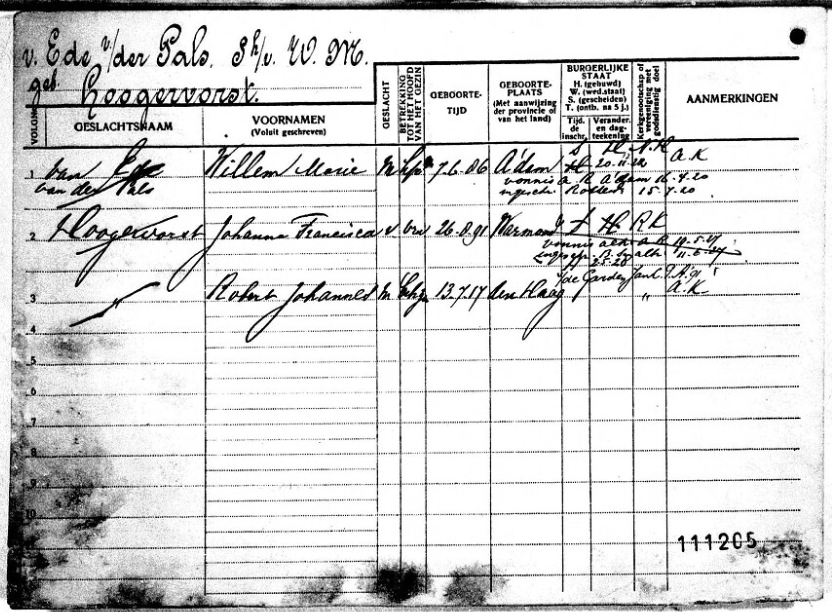 v. Ede v/der Pals, W. M.
geb. Hoogervorst.
VOLGNO
GESLACHTSNAAM
VOORNAMEN
(Voluit geschreven)
GESLACHT
BETREKKING
TOT HET HOOFD
VAN HET GEZIN
GEBOORTE-
TIJD
GEBOORTE-
PLAATS
(Met aanwijzing
der provincie of
van het land)
BURGERLIJKE
STAAT
H. (gehuwd)
W. (wed.staat)
S. (gescheiden)
T. (ontb. na 5 j.)
Tijd.
de
inschr.
Verander.
en dag-
teekening
Kerkgenootschap of
vereeniging met
godsdienstig doel
AANMERKINGEN
1 van Ede Willem Marie M 7.6.86 A'dam S H N.H A.K
van der Pals H 20.11.22
vonnis A'dam 7.20
15.7.20
2 Hoogervorst Johanna Francisca v vrw 26.8.91 Warmond S H RK
vonnis 10.5.27
3 " Robert Johannes M 13.7.17 den Haag " A.K
4
5
6
7
8
9
10
111205